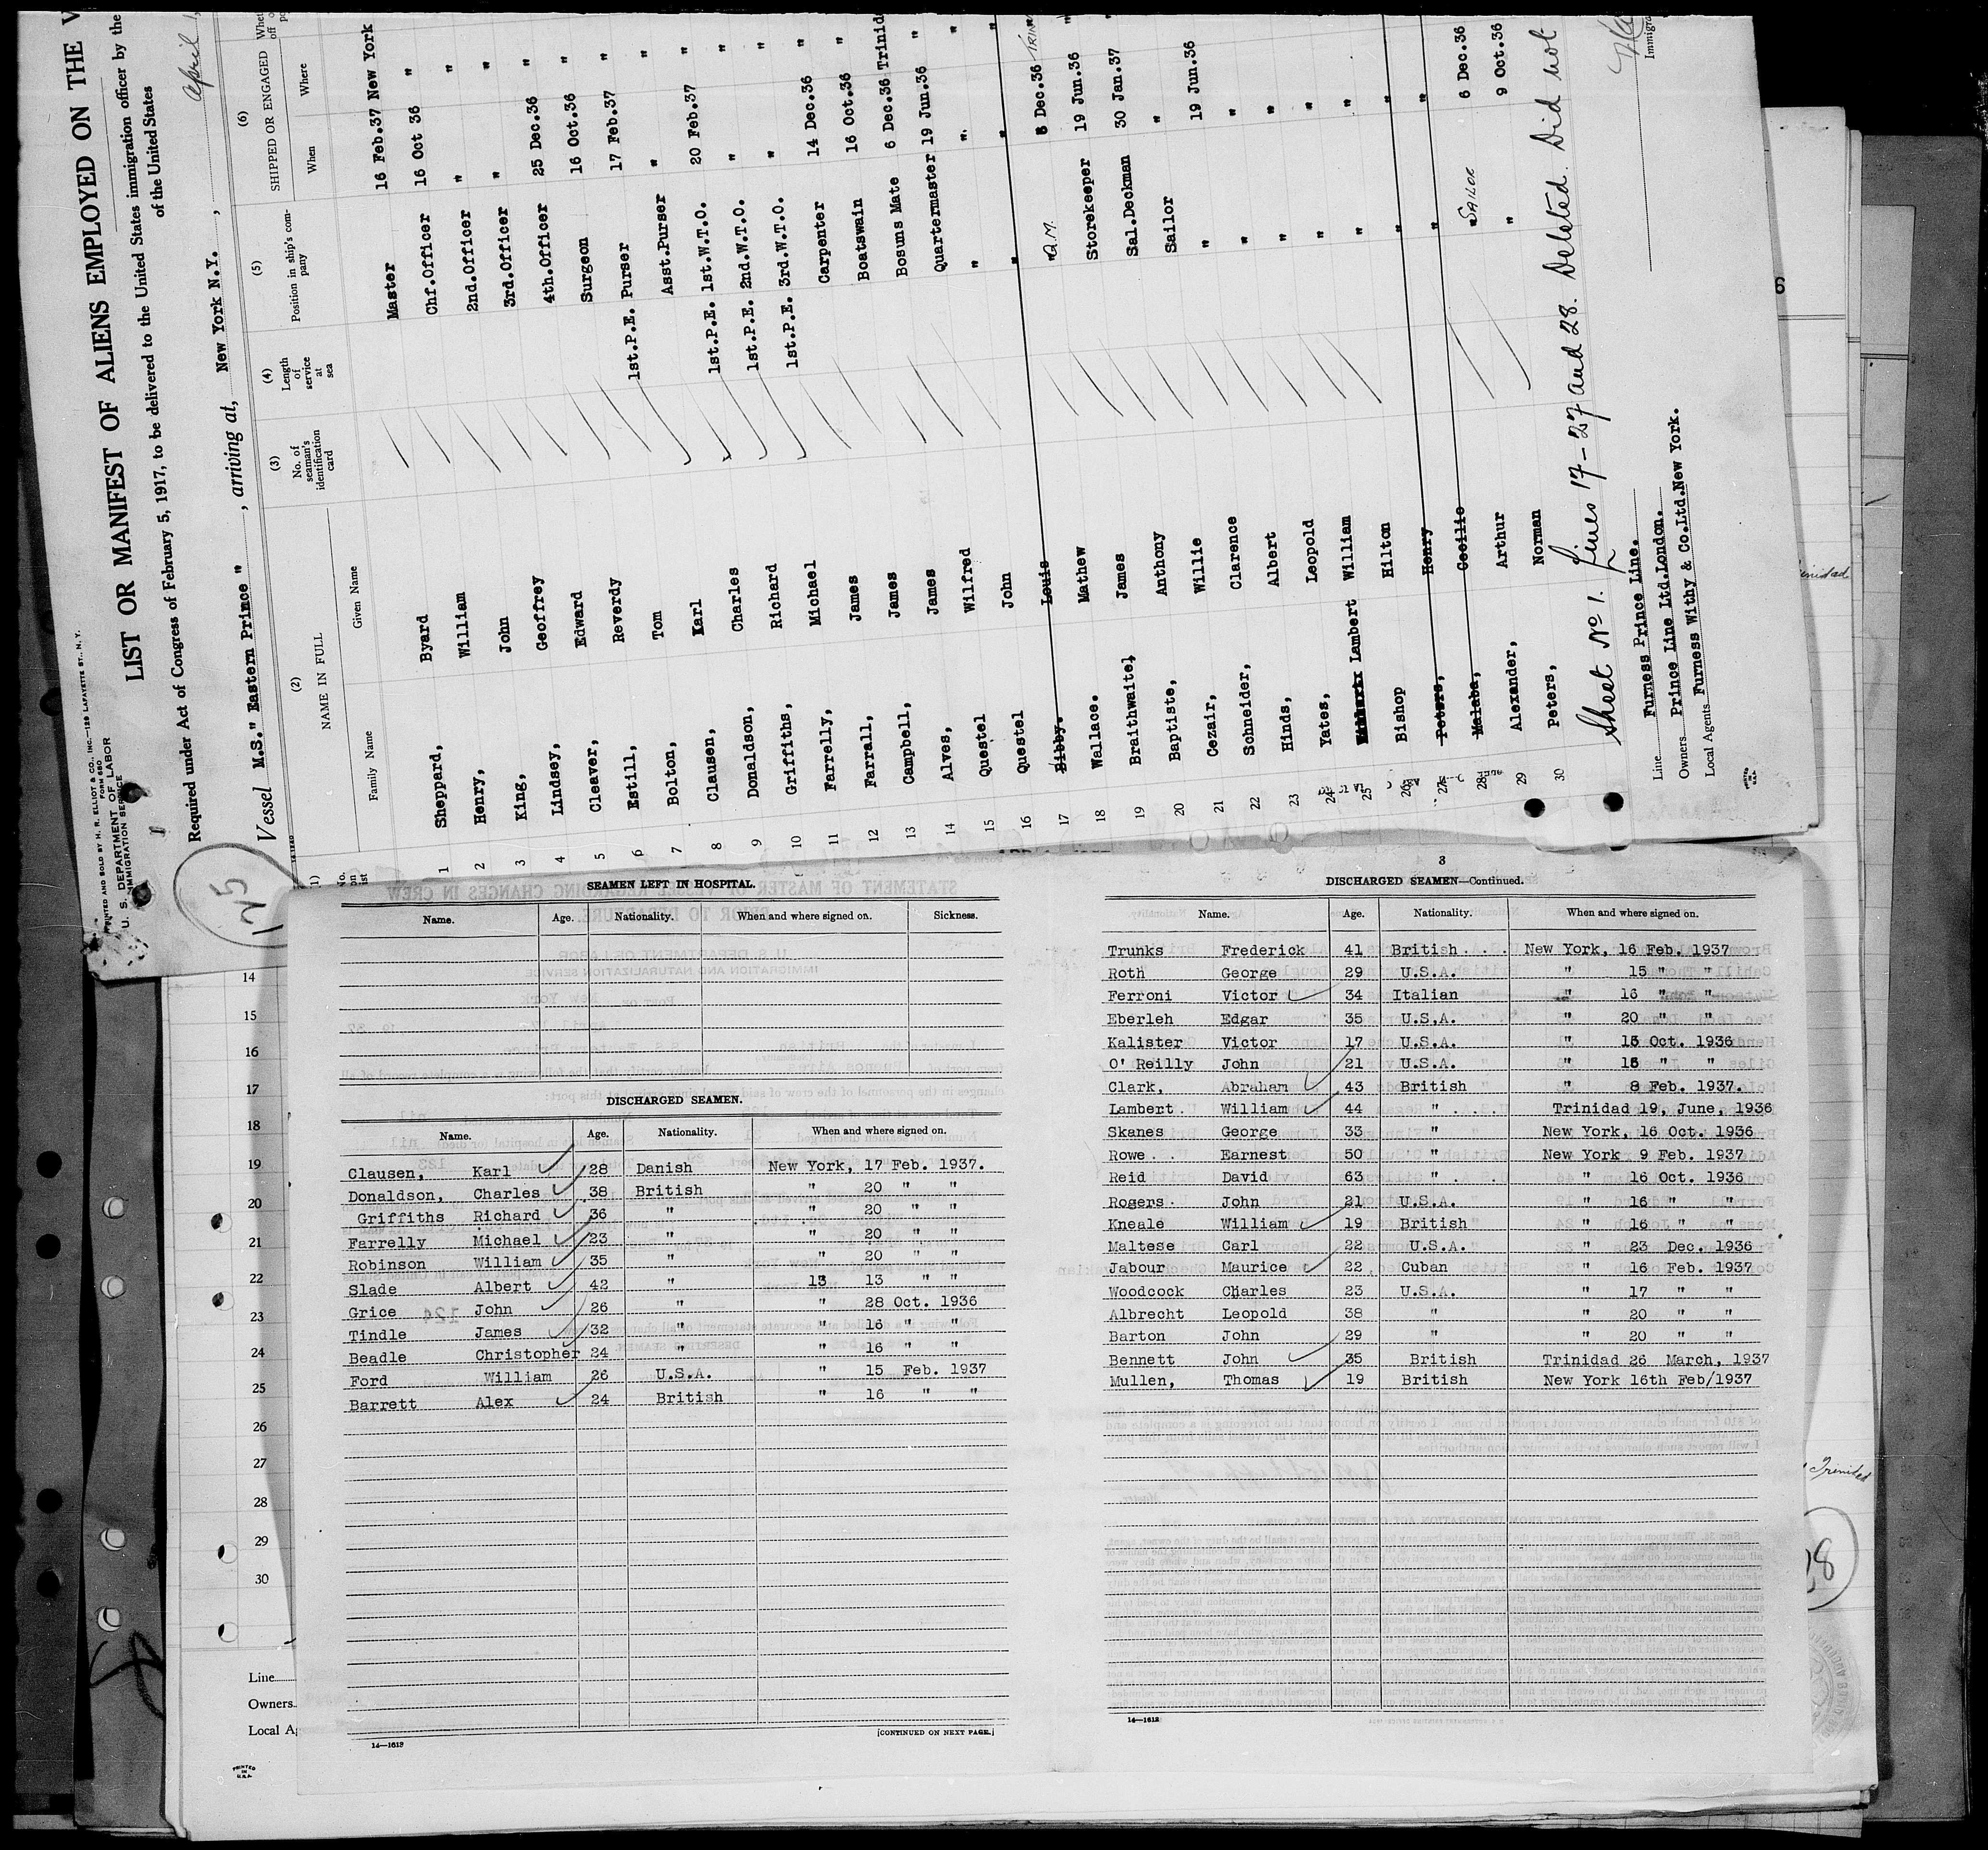 PRINTED AND SOLD BY H. R. ELLIOT & CO., INC.—129 LAFAYETTE ST., N. Y.
FORM 680
U. S. DEPARTMENT OF LABOR
IMMIGRATION SERVICE
LIST OR MANIFEST OF ALIENS EMPLOYED ON THE V
Required under Act of Congress of February 5, 1917, to be delivered to the United States immigration officer by the
of the United States
Vessel M.S." Eastern Prince " , arriving at, New York N.Y. , April 1,
(1) (2) (3) (4) (5) (6)
NAME IN FULL No. of seaman's identification card Length of service at sea Position in ship's company SHIPPED OR ENGAGED
Family Name Given Name When Where
Master 16 Feb.37 New York
1 Sheppard, Byard Chf.Officer 16 Oct 36 "
2 Henry, William 2nd.Officer " "
3 King, John 3rd.Officer " "
4 Lindsey, Geoffrey 4th.Officer 25 Dec.36 "
5 Cleaver, Edward Surgeon 16 Oct.36 "
6 Estill, Reverdy 1st.P.E. Purser 17 Feb.37 "
7 Bolton, Tom Asst.Purser " "
8 Clausen, Karl 1st.P.E. 1st.W.T.O. 20 Feb.37 "
9 Donaldson, Charles 1st.P.E. 2nd.W.T.O. " "
10 Griffiths, Richard 1st.P.E. 3rd.W.T.O. " "
11 Farrelly, Michael Carpenter 14 Dec.36 "
12 Farrall, James Boatswain 16 Oct.36 "
13 Campbell, James Bosuns Mate 6 Dec.36 Trinid
14 Alves, James Quartermaster 19 Jun.36 "
15 Questel Wilfred " " "
16 Questel John " " "
17 Bibby. Louis " Q.M. 8 Dec.36 TRIN
18 Wallace. Mathew Storekeeper 19 Jun.36 "
19 Braithwaite, James Sal.Deckman 30 Jan.37 "
20 Baptiste, Anthony Sailor "
21 Cezair, Willie " 19 Jun.36
22 Schneider, Clarence " "
23 Hinds, Albert " "
24 Yates, Leopold " "
25 Lambert William " "
26 Bishop Hilton " "
27 Peters, Henry " "
28 Malaba, Cecilie " SAILOR 6 Dec.36
29 Alexander, Arthur " 9 Oct.36
30 Peters, Norman
Sheet No 1. Lines 17-27 and 28. Deleted. Did not
Line Furness Prince Line.
Owners Prince Line Ltd.London.
Local Agents Furness Withy & Co.Ltd.New York.
Immigra
PRINTED IN U.S.A.
125
14
15
16
17
18
19
20
21
22
23
24
25
26
27
28
29
30
Line
Owners
Local Ag
PRINTED IN U.S.A.
SEAMEN LEFT IN HOSPITAL.
Name. Age. Nationality. When and where signed on. Sickness.
DISCHARGED SEAMEN.
Name. Age. Nationality. When and where signed on.
Clausen, Karl 28 Danish New York, 17 Feb. 1937.
Donaldson, Charles 38 British " 20 " "
Griffiths Richard 36 " " 20 " "
Farrelly Michael 23 " " 20 " "
Robinson William 35 " " 20 " "
Slade Albert 42 " 13 13 " "
Grice John 26 " " 28 Oct. 1936
Tindle James 32 " " 16 " "
Beadle Christopher 24 " " 16 " "
Ford William 26 U.S.A. " 15 Feb. 1937
Barrett Alex 24 British " 16 " "
[CONTINUED ON NEXT PAGE.]
14—1613
3
DISCHARGED SEAMEN—Continued.
Name. Age. Nationality. When and where signed on.
Trunks Frederick 41 British New York, 16 Feb. 1937
Roth George 29 U.S.A. " 15 " "
Ferroni Victor 34 Italian " 16 " "
Eberleh Edgar 35 U.S.A. " 20 " "
Kalister Victor 17 U.S.A. " Oct. 1936
O' Reilly John 21 U.S.A. " " "
Clark, Abraham 43 British " 8 Feb. 1937.
Lambert William 44 " Trinidad 19, June, 1936
Skanes George 33 " New York, 16 Oct. 1936
Rowe Earnest 50 " New York 9 Feb. 1937
Reid David 63 " " 16 Oct. 1936
Rogers John 21 U.S.A. " 16 " "
Kneale William 19 British " 16 " "
Maltese Carl 22 U.S.A. " 23 Dec. 1936
Jabour Maurice 22 Cuban " 16 Feb. 1937
Woodcock Charles 23 U.S.A. " 17 " "
Albrecht Leopold 38 " " 20 " "
Barton John 29 " " 20 " "
Bennett John 35 British Trinidad 26 March, 1937
Mullen, Thomas 19 British New York 16th Feb/1937
14—1613
Trinidad
28